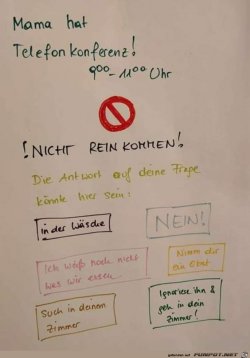 Mama hat
Telefonkonferenz!
9⁰⁰ - 11⁰⁰ Uhr
! NICHT REIN KOMMEN!
Die Antwort auf deine Frage
könnte hier sein:
in der Wäsche
NEIN!
Ich weiß noch nicht
was wir essen
Nimm dir
ein Obst
Such in deinem
Zimmer
Ignoriere ihn &
geh in dein
Zimmer!
FUNPOT.NET